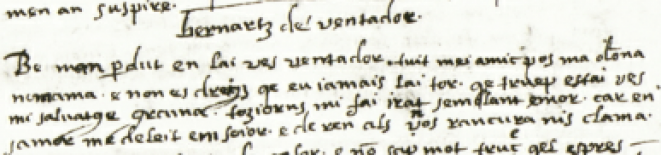 men an suspire.
bernartz de ventador.
Be man pdut en lai ues uentador. tuit mei amic pos ma dona
nomama. e non es dreitz qe eu iamais lai tor. qe truep estai ues
mi saluatge grcuna. toziorns mi fai irat semblant emor. car en
samor me deleit em soior. e de ren als nos rancura nis clama.
e no sap mot truc qel espres